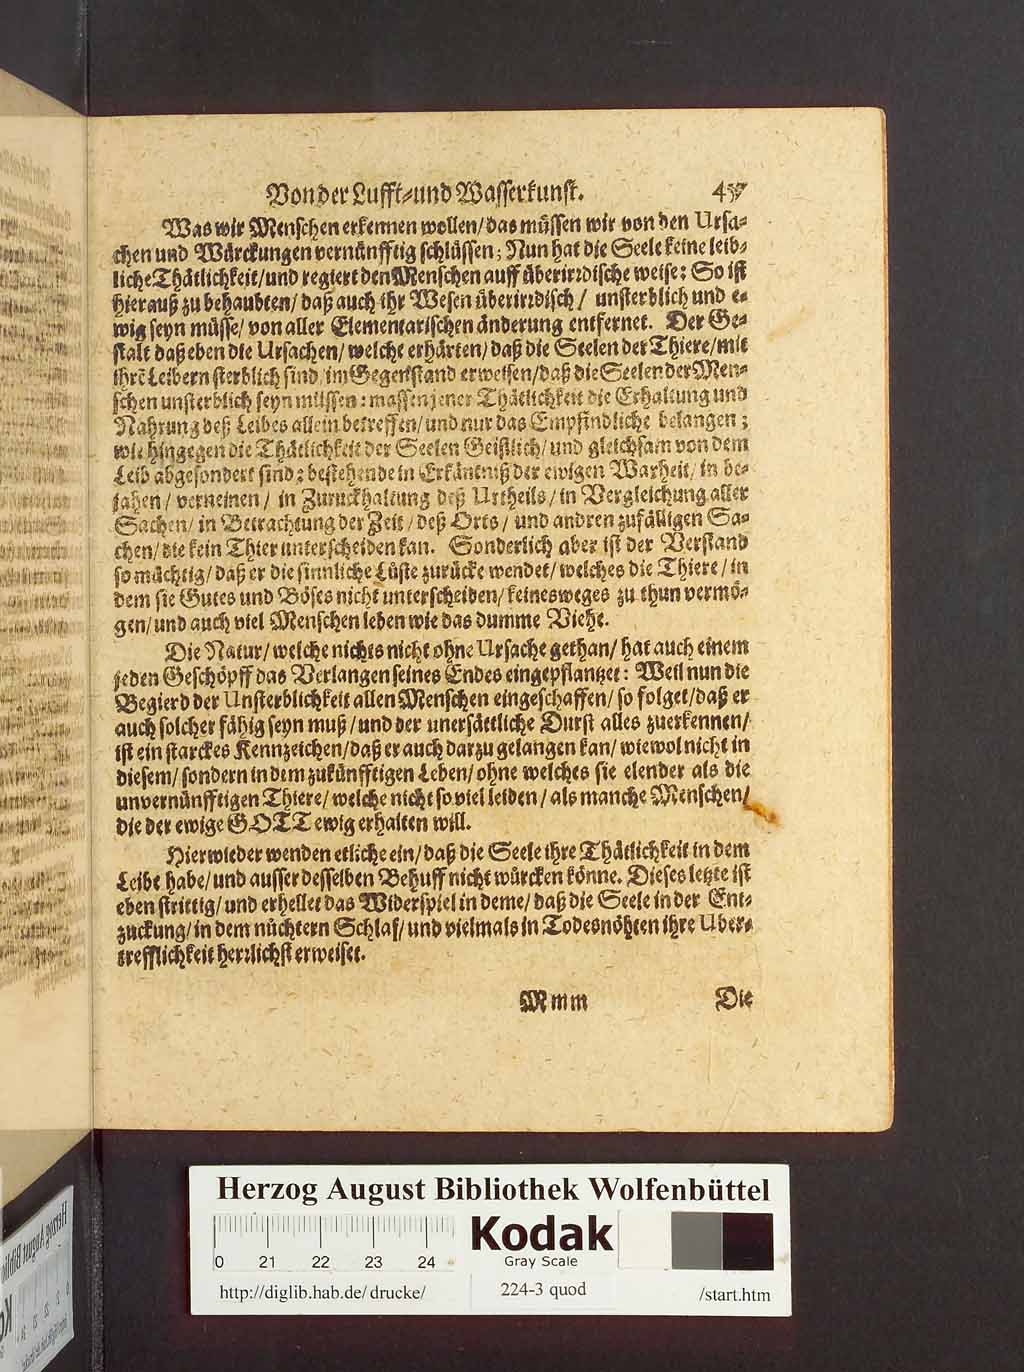 Von der Lufft-und Wasserkunst. 457
Was wir Menschen erkennen wollen/ das müssen wir von den Ursa-
chen und Würckungen vernünfftig schlüssen; Nun hat die Seele keine leib-
liche Thätlichkeit/ und regiert den Menschen auff überirrdische weise: So ist
hierauß zu behaubten/ daß auch ihr Wesen überirrdisch/ unsterblich und e-
wig seyn müsse/ von aller Elementarischen änderung entfernet. Der Ge-
stalt daß eben die Ursachen/ welche erhärten/ daß die Seelen der Thiere/ mit
ihrẽ Leibern sterblich sind/ im Gegenstand erweisen/ daß die Seelen der Men-
schen unsterblich seyn müssen: massen jener Thätlichkeit die Erhaltung und
Nahrung deß Leibes allein betreffen/ und nur das Empfindliche belangen;
wie hingegen die Thätlichkeit der Seelen Geistlich/ und gleichsam von dem
Leib abgesondert sind; bestehende in Erkäntniß der ewigen Warheit/ in be-
jahen/ verneinen/ in Zuruckhaltung deß Urtheils/ in Vergleichung aller
Sachen/ in Betrachtung der Zeit/ deß Orts/ und andren zufälligen Sa-
chen/ die kein Thier unterscheiden kan. Sonderlich aber ist der Verstand
so mächtig/ daß er die sinnliche Lüste zurücke wendet/ welches die Thiere/ in
dem sie Gutes und Böses nicht unterscheiden/ keinesweges zu thun vermö-
gen/ und auch viel Menschen leben wie das dumme Viehe.
Die Natur/ welche nichts nicht ohne Ursache gethan/ hat auch einem
jeden Geschöpff das Verlangen seines Endes eingepflantzet: Weil nun die
Begierd der Unsterblichkeit allen Menschen eingeschaffen/ so folget/ daß er
auch solcher fähig seyn muß/ und der unersättliche Durst alles zuerkennen/
ist ein starckes Kennzeichen/ daß er auch darzu gelangen kan/ wiewol nicht in
diesem/ sondern in dem zukünfftigen Leben/ ohne welches sie elender als die
unvernünfftigen Thiere/ welche nicht so viel leiden/ als manche Menschen/
die der ewige GOTT ewig erhalten will.
Hierwieder wenden etliche ein/ daß die Seele ihre Thätlichkeit in dem
Leibe habe/ und ausser desselben Behuff nicht würcken könne. Dieses letzte ist
eben strittig/ und erhellet das Widerspiel in deme/ daß die Seele in der Ent-
zuckung/ in dem nüchtern Schlaf/ und vielmals in Todesnöhten ihre Uber-
trefflichkeit herrlichst erweiset.
Mmm Die
Herzog August Bibliothek Wolfenbüttel
Kodak
Gray Scale
0 21 22 23 24
http://diglib.hab.de/ drucke/ 224-3 quod /start.htm